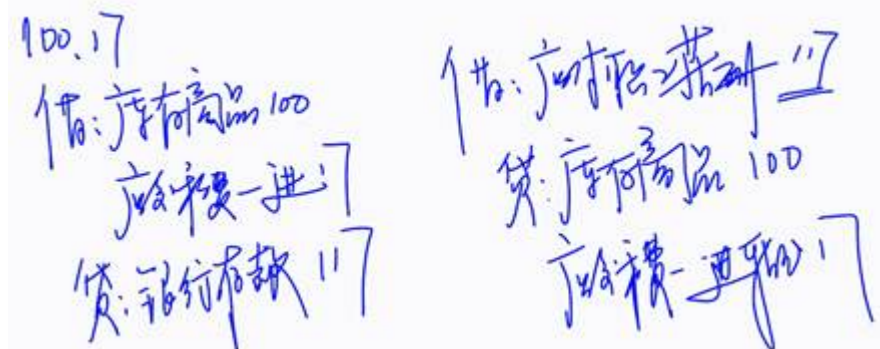 100.17
借:库存商品 100
应交税费—进 17
贷:银行存款 117
借:应付职工薪酬 117
贷:库存商品 100
应交税费—进转出 17